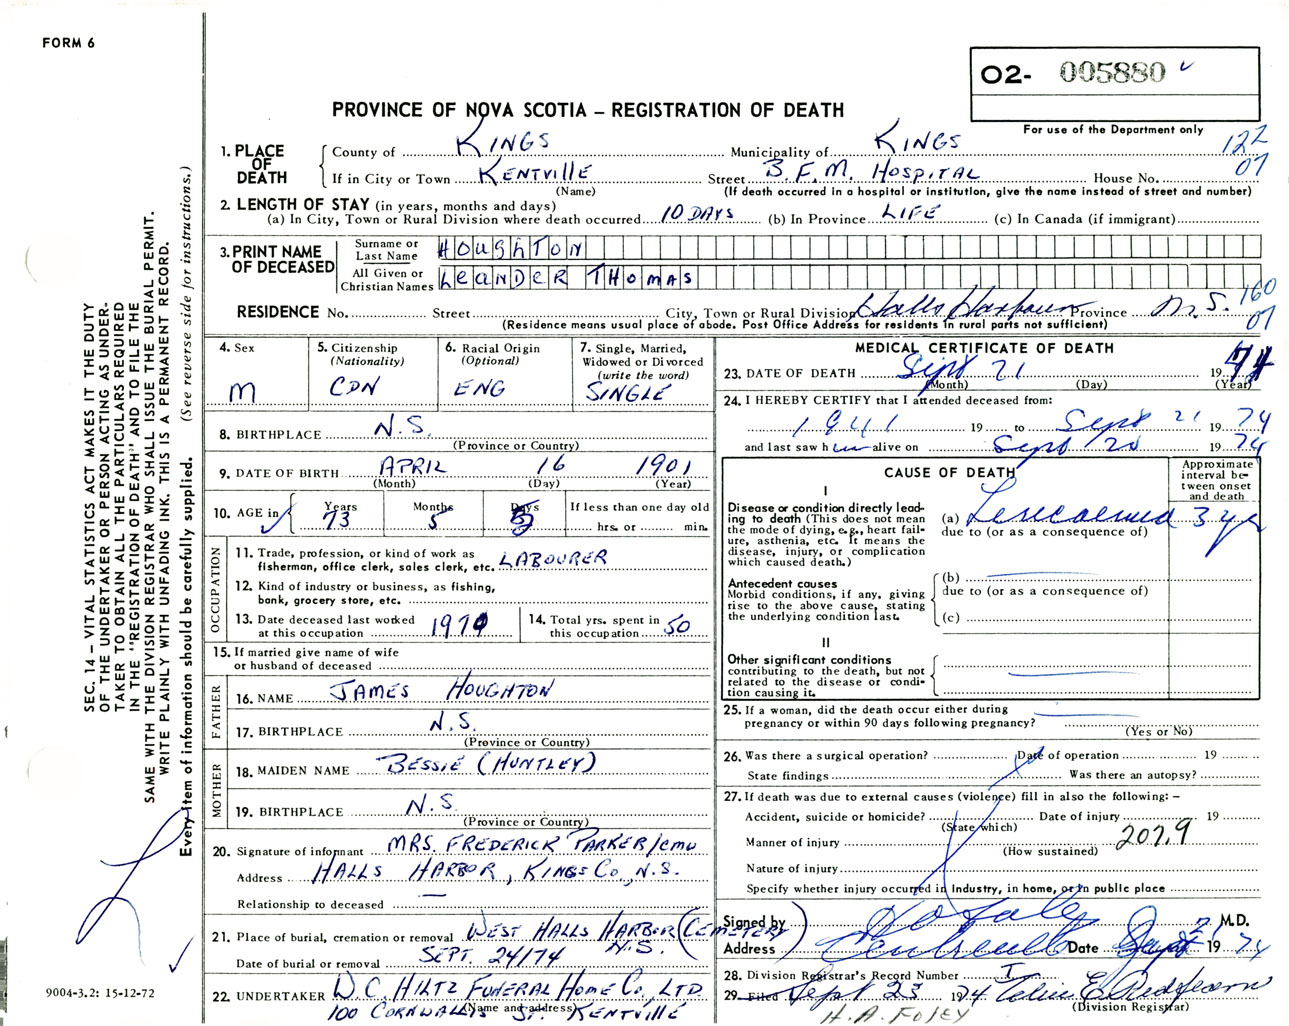 FORM 6
O2- 005880
For use of the Department only
PROVINCE OF NOVA SCOTIA – REGISTRATION OF DEATH
122
07
1. PLACE OF DEATH
County of KINGS Municipality of KINGS
If in City or Town KENTVILLE Street B.F.M. HOSPITAL House No.
(Name) (If death occurred in a hospital or institution, give the name instead of street and number)
2. LENGTH OF STAY (in years, months and days)
(a) In City, Town or Rural Division where death occurred 10 DAYS (b) In Province LIFE (c) In Canada (if immigrant)
3. PRINT NAME OF DECEASED
Surname or Last Name HOUGHTON
All Given or Christian Names LEANDER THOMAS
RESIDENCE No. Street City, Town or Rural Division Halls Harbour Province N.S.
160
07
(Residence means usual place of abode. Post Office Address for residents in rural parts not sufficient)
4. Sex
M
5. Citizenship
(Nationality)
CDN
6. Racial Origin
(Optional)
ENG
7. Single, Married,
Widowed or Divorced
(write the word)
SINGLE
8. BIRTHPLACE N.S.
(Province or Country)
9. DATE OF BIRTH APRIL 16 1901
(Month) (Day) (Year)
10. AGE in
Years Months Days
73 5 5
If less than one day old
hrs. or min.
OCCUPATION
11. Trade, profession, or kind of work as
fisherman, office clerk, sales clerk, etc. LABOURER
12. Kind of industry or business, as fishing,
bank, grocery store, etc.
13. Date deceased last worked
at this occupation 1970
14. Total yrs. spent in
this occupation 50
15. If married give name of wife
or husband of deceased
FATHER
16. NAME JAMES HOUGHTON
17. BIRTHPLACE N.S.
(Province or Country)
MOTHER
18. MAIDEN NAME BESSIE (HUNTLEY)
19. BIRTHPLACE N.S.
(Province or Country)
20. Signature of informant MRS. FREDERICK PARKER/cmw
Address HALLS HARBOR, KINGS CO., N.S.
Relationship to deceased —
21. Place of burial, cremation or removal WEST HALLS HARBOR (CEMETERY)
N.S.
Date of burial or removal SEPT. 24/74
22. UNDERTAKER W.C. HILTZ FUNERAL HOME CO., LTD
(Name and address)
100 CORNWALLIS ST. KENTVILLE
MEDICAL CERTIFICATE OF DEATH
23. DATE OF DEATH Sept 21 1974
(Month) (Day) (Year)
24. I HEREBY CERTIFY that I attended deceased from:
1941 19 to Sept 21 1974
and last saw him alive on Sept 20 1974
CAUSE OF DEATH
Approximate
interval be-
tween onset
and death
I
Disease or condition directly lead-
ing to death (This does not mean
the mode of dying, e.g., heart fail-
ure, asthenia, etc. It means the
disease, injury, or complication
which caused death.)
(a) 3 yr
due to (or as a consequence of)
Antecedent causes
Morbid conditions, if any, giving
rise to the above cause, stating
the underlying condition last.
(b)
due to (or as a consequence of)
(c)
II
Other significant conditions
contributing to the death, but not
related to the disease or condi-
tion causing it.
25. If a woman, did the death occur either during
pregnancy or within 90 days following pregnancy?
(Yes or No)
26. Was there a surgical operation? Date of operation 19
State findings Was there an autopsy?
27. If death was due to external causes (violence) fill in also the following: –
Accident, suicide or homicide? Date of injury 19
(State which)
Manner of injury 207.9
(How sustained)
Nature of injury
Specify whether injury occurred in Industry, in home, or in public place
Signed by M.D.
Address Date Sept 21 1974
28. Division Registrar's Record Number
29. Filed Sept 23 1974 E. Redfearn
(Division Registrar)
H.A. FOLEY
SEC. 14 – VITAL STATISTICS ACT MAKES IT THE DUTY
OF THE UNDERTAKER OR PERSON ACTING AS UNDER-
TAKER TO OBTAIN ALL THE PARTICULARS REQUIRED
IN THE "REGISTRATION OF DEATH" AND TO FILE THE
SAME WITH THE DIVISION REGISTRAR WHO SHALL ISSUE THE BURIAL PERMIT.
WRITE PLAINLY WITH UNFADING INK. THIS IS A PERMANENT RECORD.
Every item of information should be carefully supplied. (See reverse side for instructions.)
9004-3.2: 15-12-72